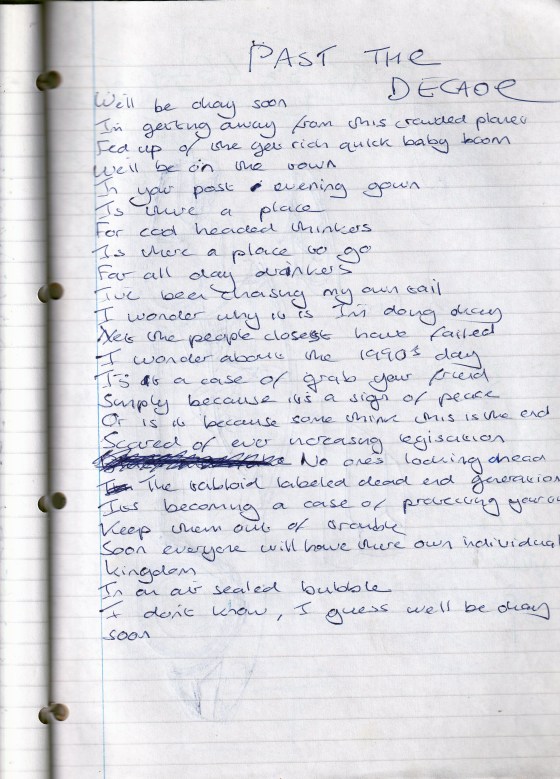 PAST THE
DECADE
We'll be okay soon
I'm getting away from this crowded planet
Fed up of the get rich quick baby boom
We'll be on the town
In your past evening gown
Is there a place
For cool headed thinkers
Is there a place to go
For all day drinkers
I've been chasing my own tail
I wonder why it is I'm doing okay
Yet the people closest have failed
I wonder about the 1990's day
Is it a case of grab your friend
Simply because it's a sign of peace
Or is it because some think this is the end
Scared of ever increasing legislation
No one's looking ahead
The tabloid labeled dead end generation
Its becoming a case of protecting your
Keep them out of trouble
Soon everyone will have there own individual
kingdom
In an air sealed bubble
I don't know, I guess we'll be okay
soon